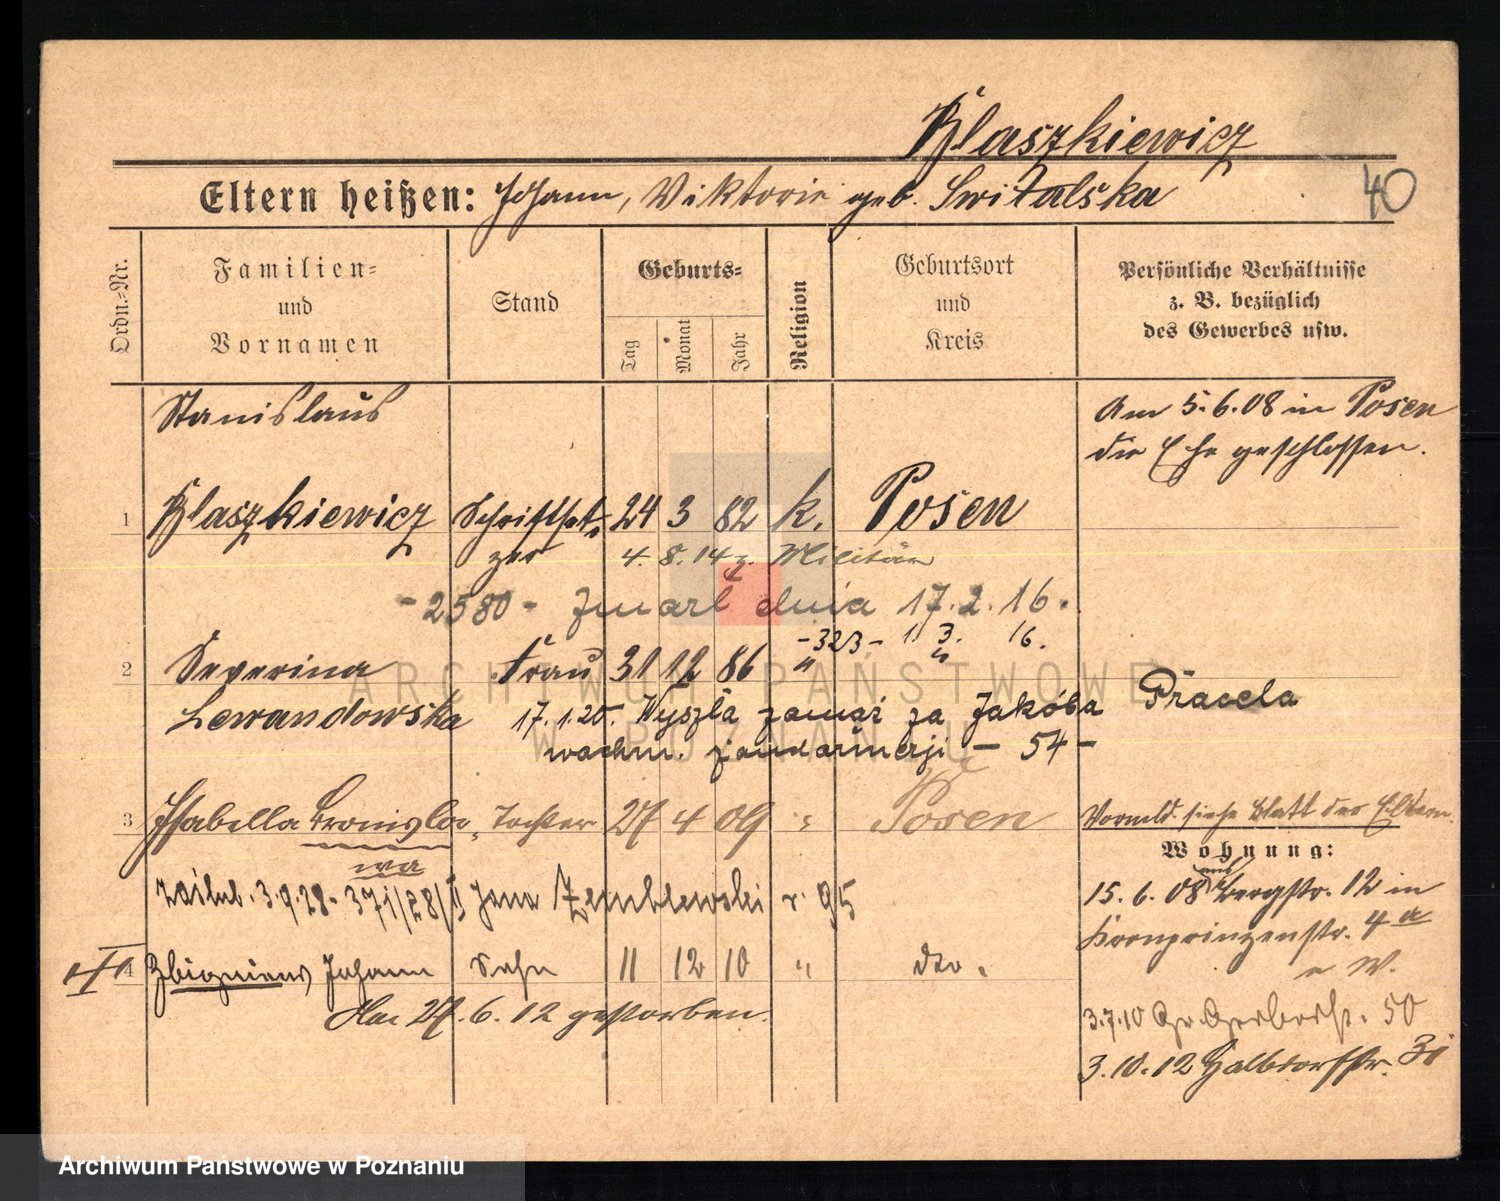 Blaszkiewicz
Eltern heißen: Johann, Viktorie geb. Switalska
40
Ordn.-Nr.
Familien-
und
Vornamen
Stand
Geburts-
Tag
Monat
Jahr
Religion
Geburtsort
und
Kreis
Persönliche Verhältnisse
z. B. bezüglich
des Gewerbes usw.
Stanislaus
Am 5.6.08 in Posen
die Ehe geschlossen.
1 Blaszkiewicz Schriftset- 24 3 82 k. Posen
zer 4.8.14 z. Militär
-2580- zmarł dnia 17.2.16.
-323- 1. 3. 16.
2 Severina Frau 31 12 86 " "
Lewandowska 17.1.20. Wyszła zamąż za Jakóba Pracela
wachm. żandarmerji - 54 -
3 Isabella Bronisla- Tochter 27 4 09 " Posen
wa
Vormld. siehe Blatt der Eltern.
Wohnung:
zaślub. 3.9.28 - 371/28/ Jana Zemblewski r. 95
15.6.08 aus Bergstr. 12 in
Kronprinzenstr. 4a
b. W.
4 Zbigniew Johann Sohn 11 12 10 " dto.
Am 27.6.12 gestorben.
3.7.10 Gr. Gerberstr. 50
3.10.12 Halbdorfstr. 31
ARCHIWUM PAŃSTWOWE
W POZNANIU
Archiwum Państwowe w Poznaniu